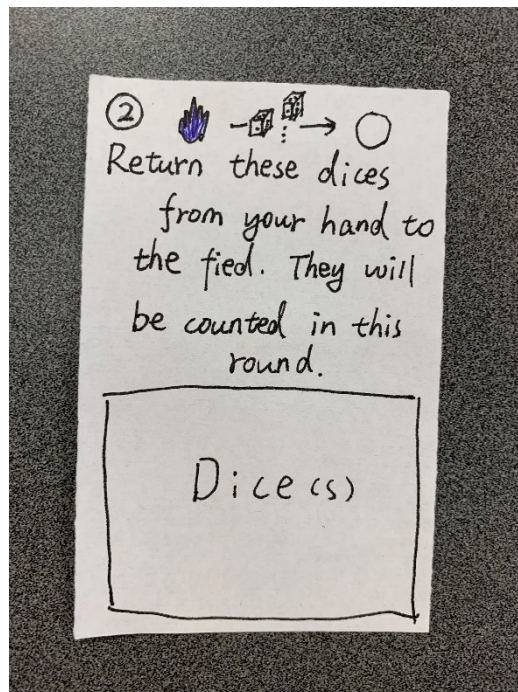 ②
Return these dices
from your hand to
the fied. They will
be counted in this
round.
Dice(s)